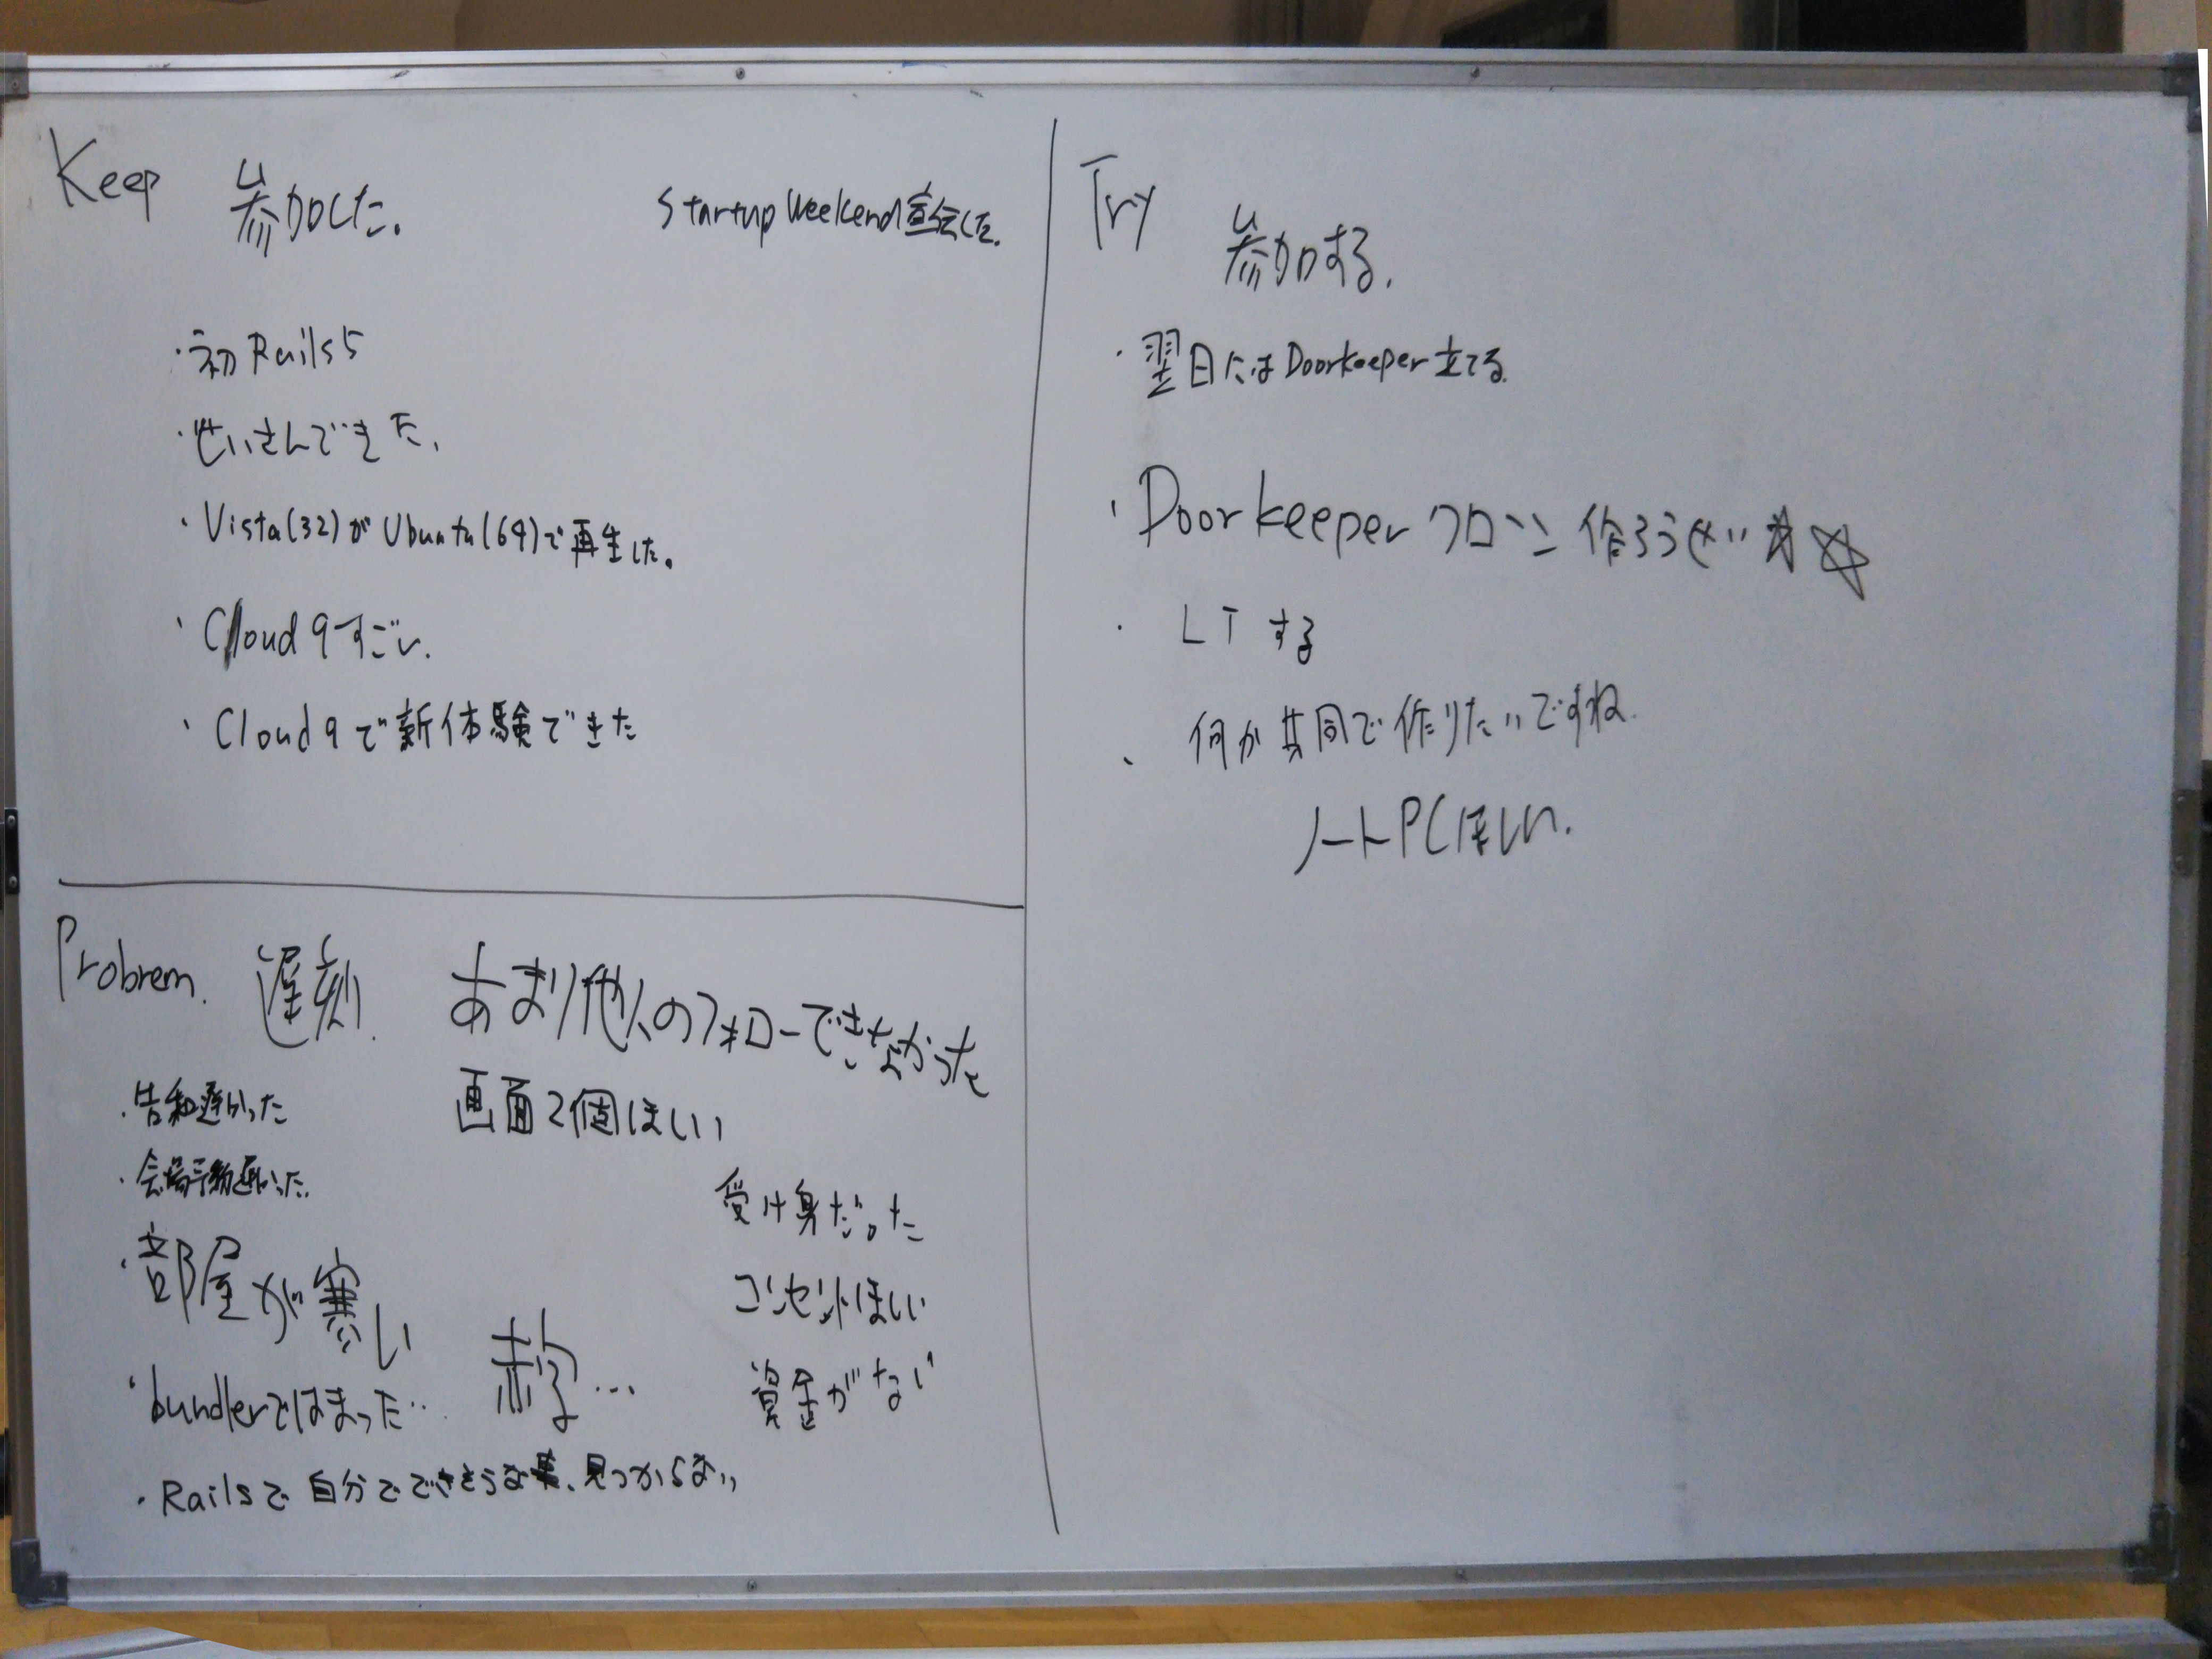 Keep
参加した。
Startup Weekend宣伝した。
・初Rails5
・せいさんできた、
・Vista(32)がUbuntu(64)で再生した。
・Cloud9すごい.
・Cloud9で新体験できた
Probrem.
遅刻.
あまり他人のフォローできなかった
・告知遅かった
画面2個ほしい
・会場手動遅かった.
受け身だった
・部屋が寒い
コンセントほしい
・bundlerではまった…
赤字…
資金がない
・Railsで自分でできそうな事、見つからない
Try
参加する.
・翌日にはDoorkeeper立てる.
・Doorkeeperクローン作ろうぜい☆☆
・LTする
、何か共同で作りたいですね.
ノートPCほしい.